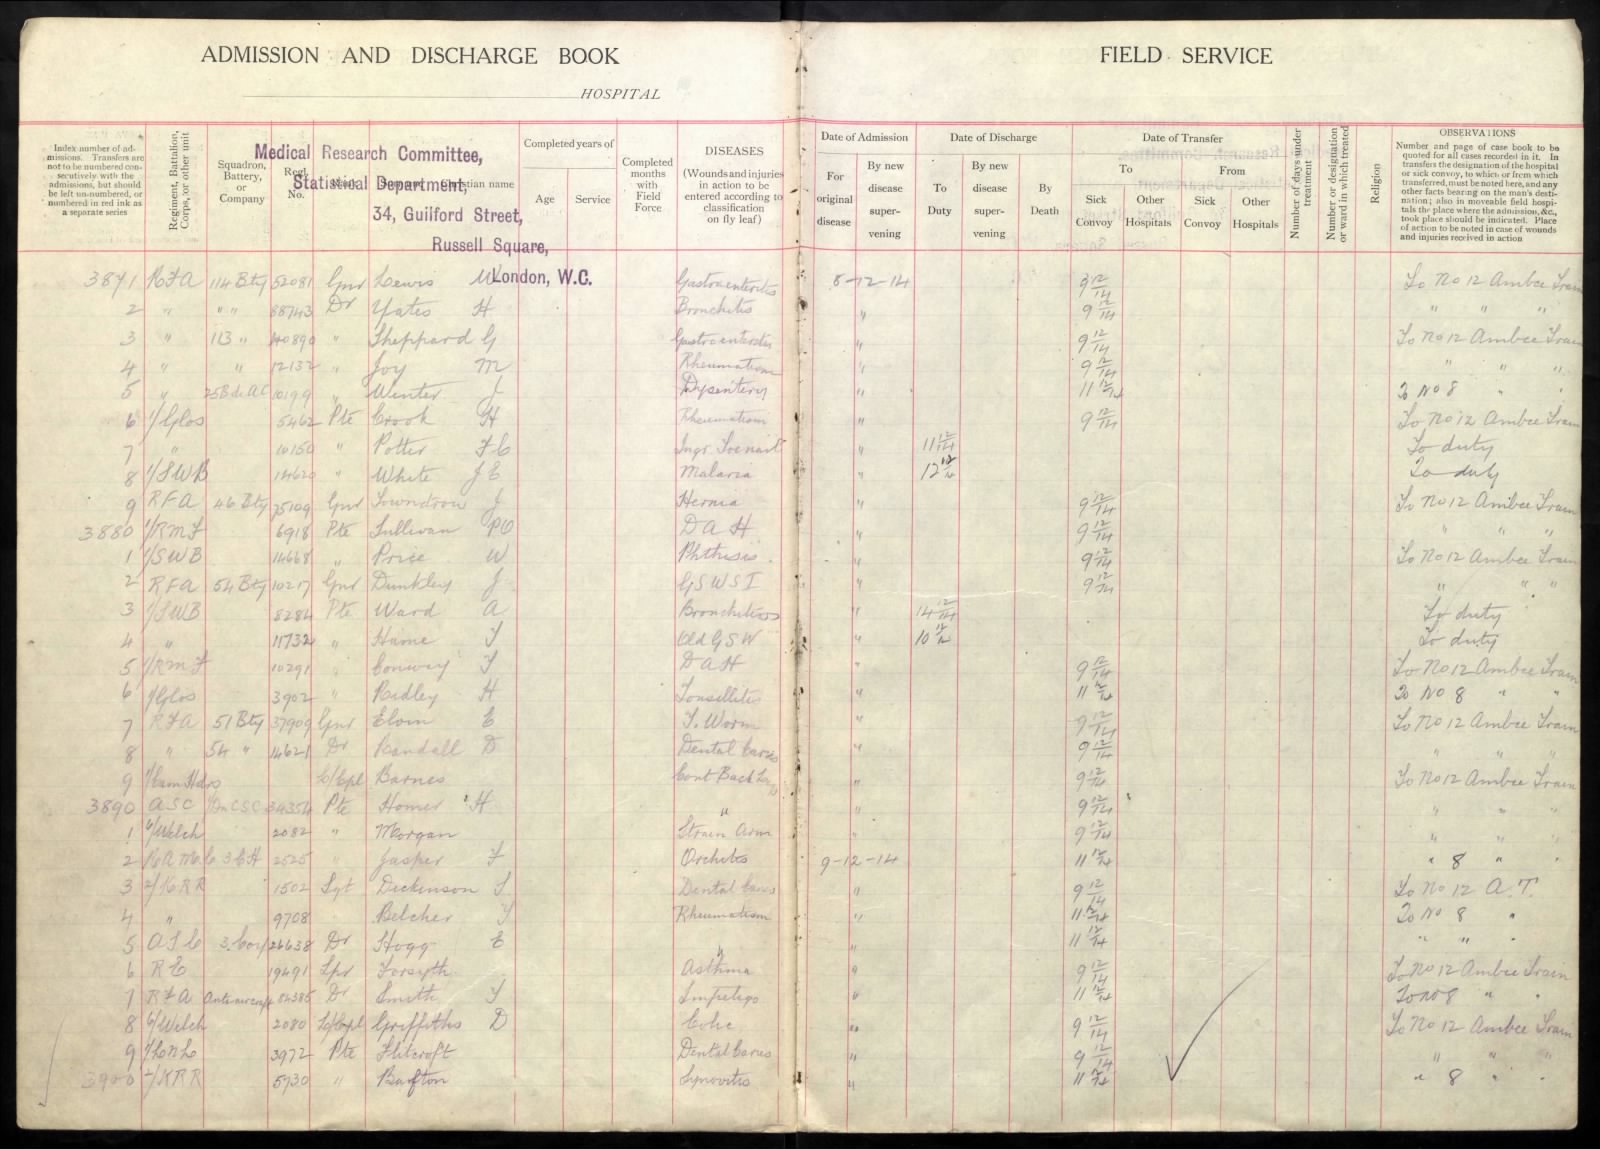 ADMISSION AND DISCHARGE BOOK
HOSPITAL
FIELD SERVICE
Medical Research Committee,
Statistical Department,
34, Guilford Street,
Russell Square,
London, W.C.
Index number of admissions. Transfers are not to be numbered consecutively with the admissions, but should be left un-numbered, or numbered in red ink as a separate series
Regiment, Battalion, Corps, or other unit
Squadron, Battery, or Company
Regl. No.
Christian name
Completed years of
Age
Service
Completed months with Field Force
DISEASES
(Wounds and injuries in action to be entered according to classification on fly leaf)
Date of Admission
For original disease
By new disease supervening
Date of Discharge
To Duty
By new disease supervening
By Death
Date of Transfer
To
Sick Convoy
Other Hospitals
From
Sick Convoy
Other Hospitals
Number of days under treatment
Number or designation or ward in which treated
Religion
OBSERVATIONS
Number and page of case book to be quoted for all cases recorded in it. In transfers the designation of the hospital or sick convoy, to which or from which transferred, must be noted here, and any other facts bearing on the man's destination; also in moveable field hospitals the place where the admission, &c., took place should be indicated. Place of action to be noted in case of wounds and injuries received in action
3871 RFA 114 Bty 52081 Gnr Lewis W Gastroenteritis 8-12-14 9 12/14 To No 12 Ambce Train
2 " " " 88743 Dr Yates H Bronchitis " 9 12/14 " " "
3 " 113 " 40890 " Sheppard G Gastroenteritis " 9 12/14 To No 12 Ambce Train
4 " " 12132 " Joy M Rheumatism " 9 12/14 " " "
5 " 10199 " Winter J Dysentery " 11 12/14 To No 8 " "
6 1/Glos 5462 Pte Crook H Rheumatism " 9 12/14 To No 12 Ambce Train
7 " 10150 " Potter F C Ingr. Toenail " 11 12/14 To duty
8 1/SWB 14620 " White J E Malaria " 12 12/14 To duty
9 RFA 46 Bty 35109 Gnr Lowndrow J Hernia " 9 12/14 To No 12 Ambce Train
3880 1/RMF 6918 Pte Sullivan PO DAH " 9 12/14 " " "
1 1/SWB 14668 " Price W Phthisis " 9 12/14 To No 12 Ambce Train
2 RFA 54 Bty 10217 Gnr Dunkley J GSWSI " 9 12/14 " " "
3 1/SWB 8284 Pte Ward A Bronchitis " 14 12/14 To duty
4 " 11732 " Hame T Old GSW " 10 12/14 To duty
5 1/RMF 10291 " Conway T DAH " 9 12/14 To No 12 Ambce Train
6 1/Glos 3902 " Ridley H Tonsillitis " 11 12/14 To No 8 " "
7 RFA 51 Bty 37909 Gnr Elvin E T. Worm " 9 12/14 To No 12 Ambce Train
8 " 54 " 14621 Dr Randall D Dental Caries " 9 12/14 " " "
9 1/Cam Hdrs L/Cpl Barnes Cont Back " 9 12/14 To No 12 Ambce Train
3890 ASC 34354 Pte Homer H " " 9 12/14 " " "
1 6/Welch 2082 " Morgan Strain Arm " 9 12/14 " " "
2 RAMC 3 CH 2525 " Jasper F Orchitis 9-12-14 11 12/14 " 8 " "
3 2/KRR 1502 Sgt Dickinson S Dental Caries " 9 12/14 To No 12 A.T.
4 " 9708 Belcher T Rheumatism " 11 12/14 To No 8 "
5 ASC 3 Coy 26638 Dr Hogg E " " 11 12/14 " " "
6 RE 19491 Spr Forsyth Asthma " 9 12/14 To No 12 Ambce Train
7 RFA Antiaircraft 84385 Dr Smith T Impetigo " 11 12/14 To No 8 " "
8 6/Welch 2080 L/Cpl Griffiths D Colic " 9 12/14 To No 12 Ambce Train
9 1/LNL 3972 Pte Flitcroft Dental Caries " 9 12/14 " " "
3900 2/KRR 5730 " Barfton Synovitis " 11 12/14 " 8 " "